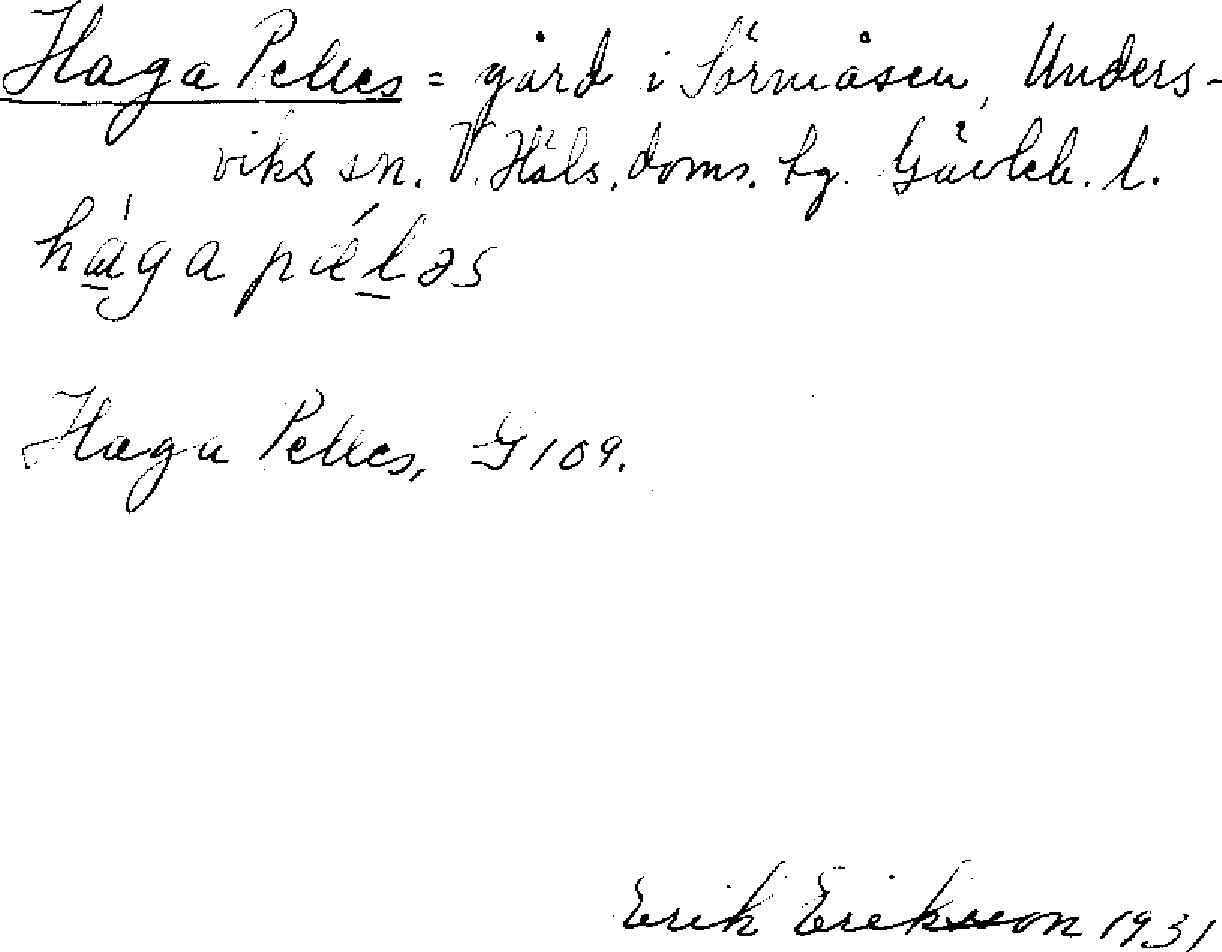 Haga Pelles = gård i Sörmåsen, Unders-
viks sn. V. Häls. doms. hg. Gävleb. l.
hága pǽləs
Haga Pelles, G 109.
Erik Eriksson 1931